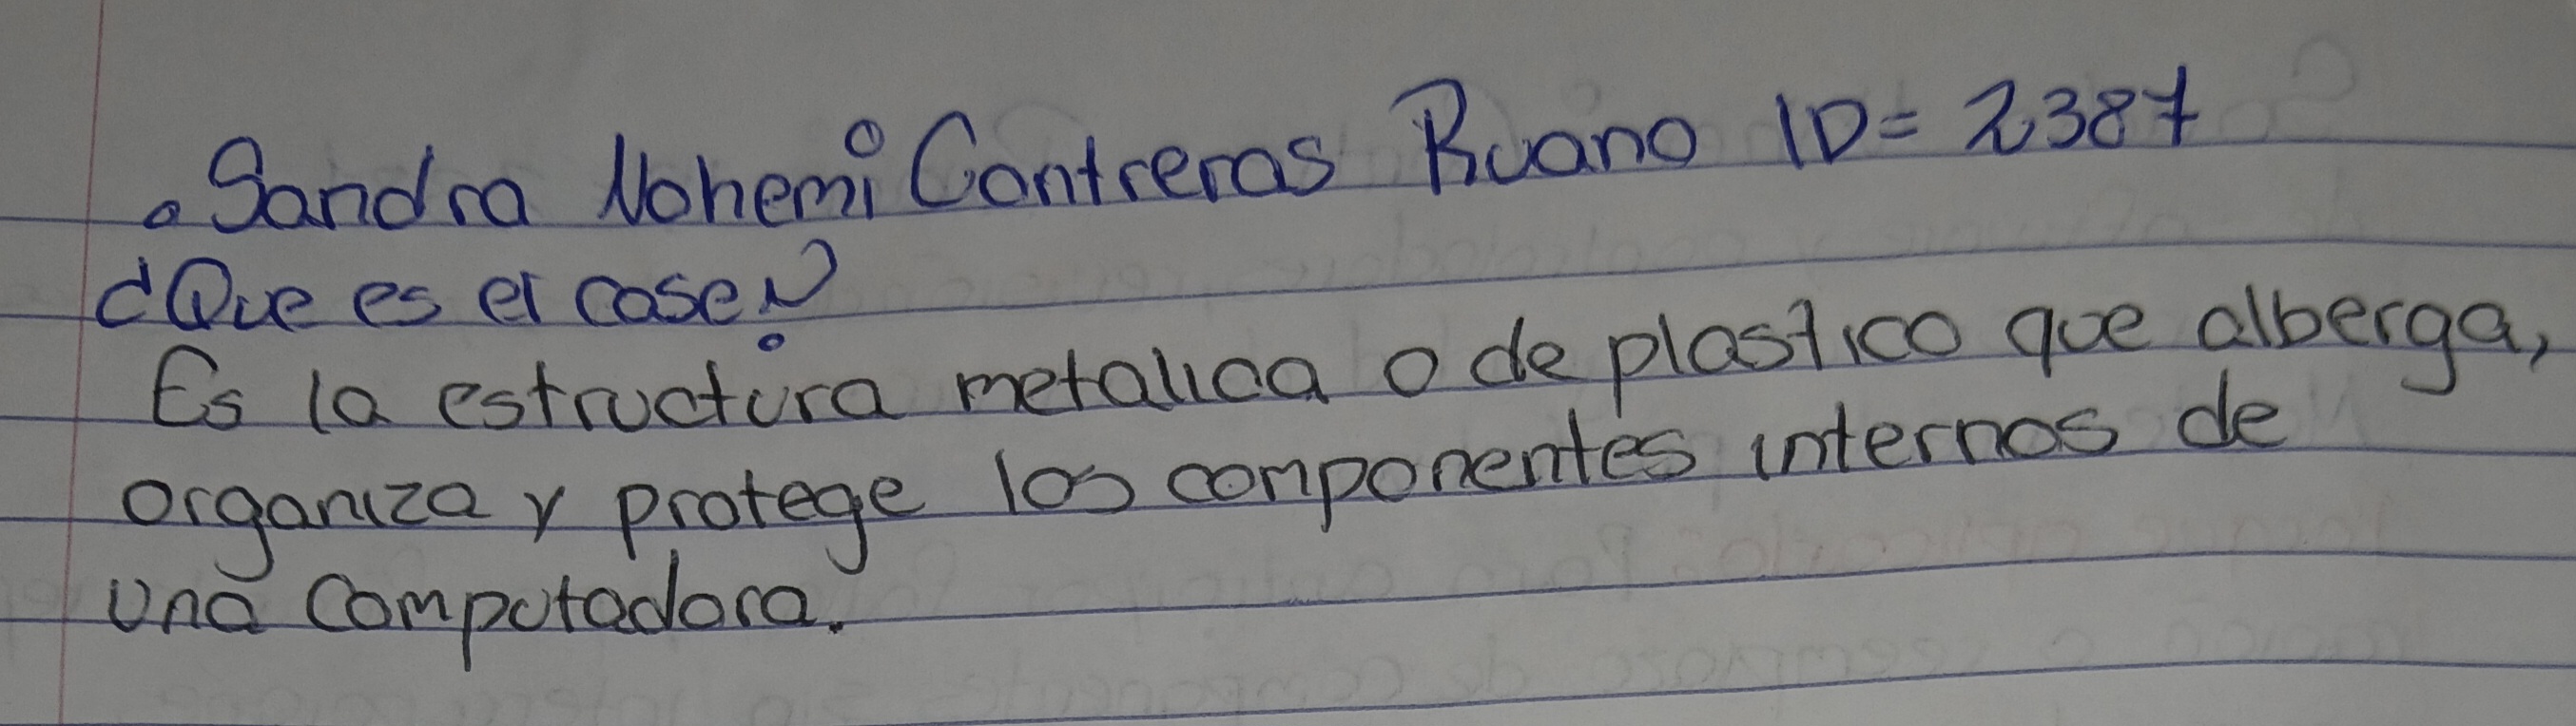 . Sandra Nohemi Contreras Ruano ID= 2387
¿Que es el case?
Es la estructura metalica o de plastico que alberga,
organiza y protege los componentes internos de
una computadora.